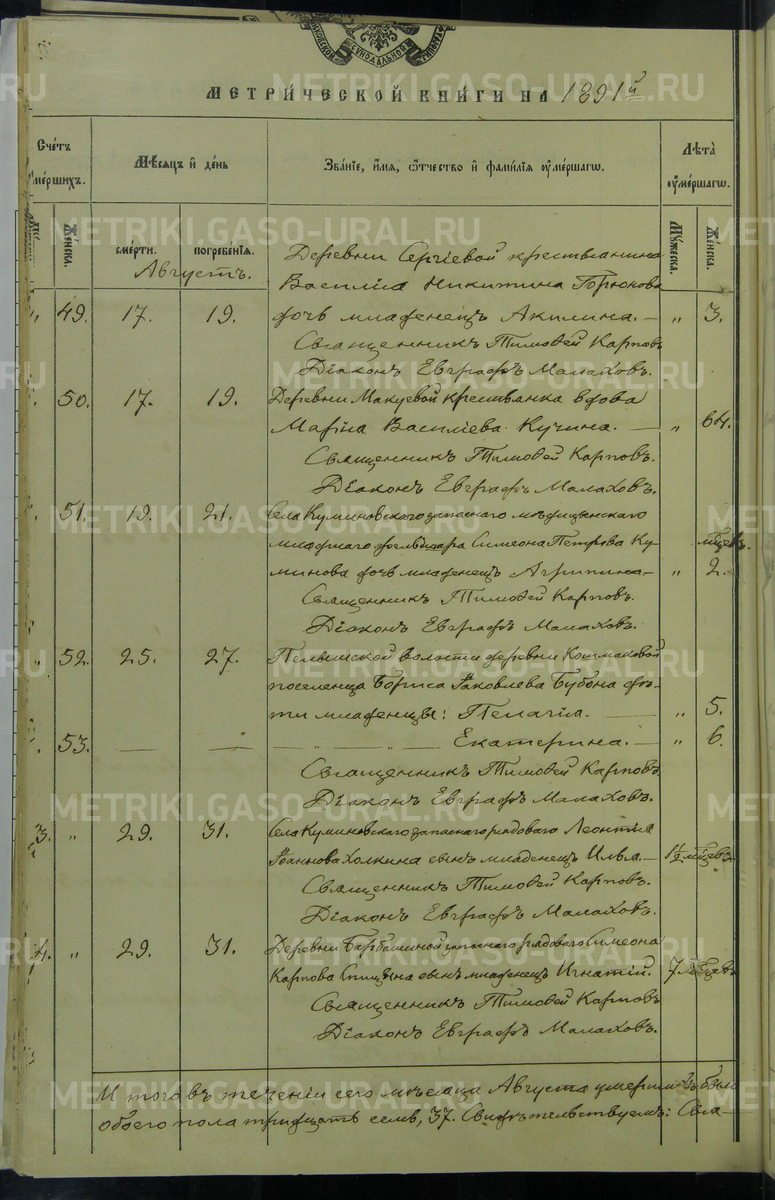 СУНОДАЛЬНОЙ
МЕТРИЧЕСКОЙ КНИГИ НА 1891й
Счетъ умершихъ.
Мѣсяцъ и день
Званіе, имя, отчество и фамилія умершаго.
Лѣта умершаго.
Женска.
смерти.
погребенія.
Мужеска.
Женска.
Августъ.
Деревни Сергіевой крестьянина
Василія Никитина Горюнова
„ 49. 17. 19. дочь младенецъ Акилина. — „ 3.
Священникъ Тимоѳей Карповъ
Діаконъ Евграфъ Малаховъ.
50. 17. 19. Деревни Макуевой крестьянка вдова
Марiна Василіева Кучина. — „ 64.
Священникъ Тимоѳей Карповъ.
Діаконъ Евграфъ Малаховъ.
51. 19. 21. Села Куминовскаго запаснаго медицынскаго
младшаго фельдшара Симеона Петрова Ку- мѣсец.
минова дочь младенецъ Агрипина — „ 2.
Священникъ Тимоѳей Карповъ.
Діаконъ Евграфъ Малаховъ.
„ 52. 25. 27. Пелымской волости деревни Кошмаковой
поселенца Бориса Яковлева Бубона дѣ-
ти младенцы: Пелагія. — „ 5.
53. — — „ „ „ Екатерина. — „ 6.
Священникъ Тимоѳей Карповъ
Діаконъ Евграфъ Малаховъ.
3. „ 29. 31. Села Куминовскаго запаснаго рядоваго Леонтія
Іоаннова Холкина сынъ младенецъ Илья. — 1½ мѣсецъ
Священникъ Тимоѳей Карповъ.
Діаконъ Евграфъ Малаховъ.
4. „ 29. 31. Деревни Барбашиной запаснаго рядоваго Симеона
Карпова Спицына сынъ младенецъ Игнатій. 7 мѣсецев
Священникъ Тимоѳей Карповъ
Діаконъ Евграфъ Малаховъ.
Итого въ теченіи сего мѣсяца Августа умершихъ было
обоего пола тридцать семь, 37. Свидѣтельствуемъ: Свя—
METRIKI.GASO-URAL.RU